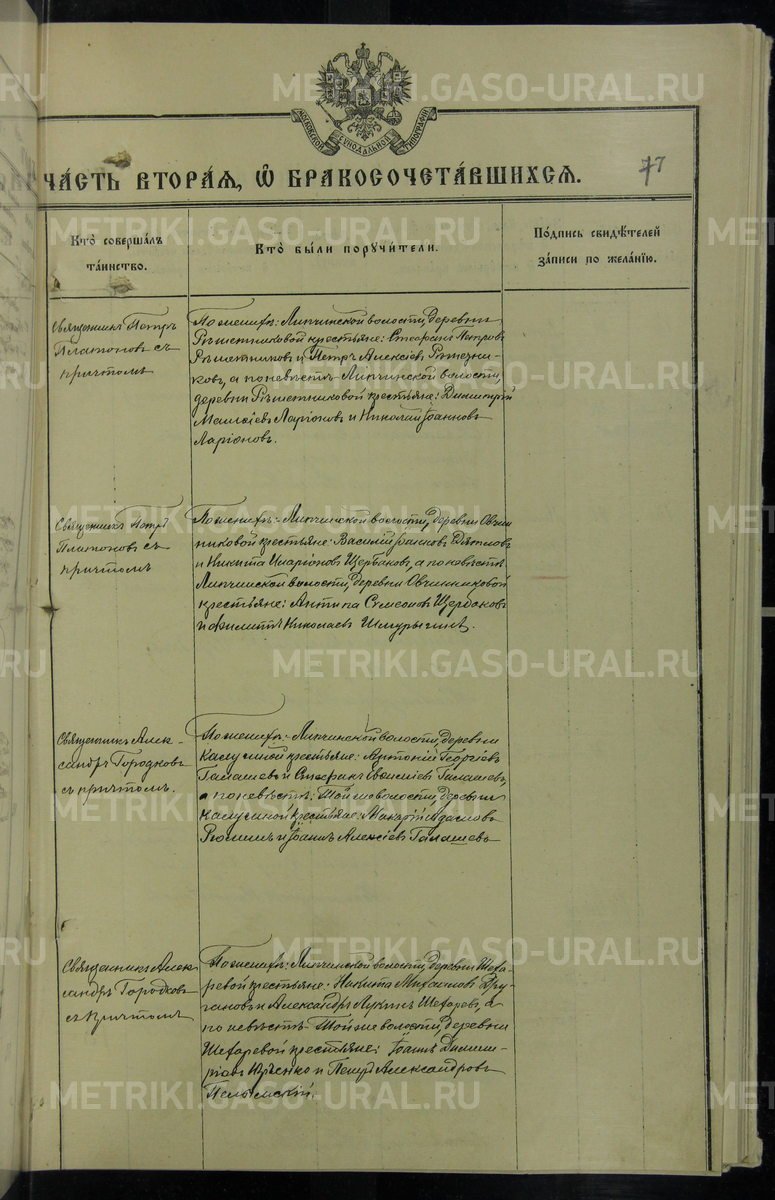 МОСКОВСКОЙ СѴНОДАЛЬНОЙ ТИПОГРАФІИ
ЧА́СТЬ ВТОРА́Я, Ѡ БРАКОСОЧЕТА́ВШИХСЯ.
77
Кто̀ соверша́лъ
та́инство.
Кто̀ бы́ли поручи́тели.
По́дпись свидѣ́телей
за́писи по жела́нію.
Священникъ Петръ
Платоновъ съ
причтомъ
По женихѣ: Липчинской волости, деревни
Рѣшетниковой крестьяне: Стефанъ Петровъ
Рѣшетниковъ и Петръ Алексѣевъ Рѣшетни-
ковъ, а по невѣстѣ Липчинской волости,
деревни Рѣшетниковой крестьяне: Димитрій
Ларіоновъ и Николай Іоанновъ
Ларіоновъ.
Священникъ Петръ
Платоновъ съ
причтомъ
По женихѣ: Липчинской волости, деревни Овчин
никовой крестьяне: Василій Іоанновъ
и Никита Иларіоновъ Щербаковъ, а по невѣстѣ
Липчинской волости, деревни Овчинниковой
крестьяне: Антипа Симеоновъ Щербаковъ
и Филиппъ Николаевъ Шмурыгинъ.
Священникъ Алек-
сандръ Городковъ
съ причтомъ.
По женихѣ: Липчинской волости, деревни
крестьяне: Антоній Георгіевъ
Галашевъ и Стефанъ Галашевъ,
а по невѣстѣ: Той же волости, деревни
крестьяне: Макарій Адамовъ
и Іоаннъ Алексѣевъ Галашевъ
Священникъ Алек
сандръ Городковъ
съ причтомъ
По женихѣ: Липчинской волости, деревни Шефа-
ревой крестьяне: Никита Михаиловъ Дру-
гановъ и Александръ Лукинъ Шефаревъ, а
по невѣстѣ Той же волости, деревни
Шефаревой крестьяне: Іоаннъ Димит-
ріевъ и Петръ Александровъ
METRIKI.GASO-URAL.RU